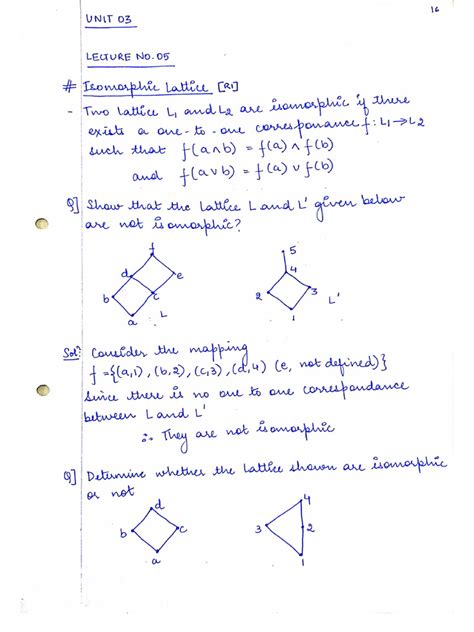 16
UNIT 03
LECTURE NO. 05
# Isomorphic Lattice [R1]
- Two lattice L1 and L2 are isomorphic if there
exists a one-to-one correspondance f: L1→L2
such that f(a∧b) = f(a) ∧ f(b)
and f(a∨b) = f(a) ∨ f(b)
Q] Show that the lattice L and L' given below
are not isomorphic?
f
d
e
b
c
a
L
5
4
2
3
1
L'
Sol": Consider the mapping
f = {(a,1), (b,2), (c,3), (d,4) (e, not defined)}
Since there is no one to one correspondance
between L and L'
∴ They are not isomorphic
Q] Determine whether the lattice shown are isomorphic
or not
d
b
c
a
4
3
2
1